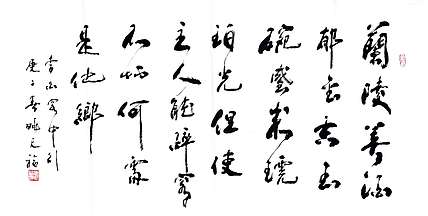 蘭陵美酒
郁金香玉
碗盛來琥
珀光但使
主人能醉客
不知何處
是他鄉
李白客中行
庚子春